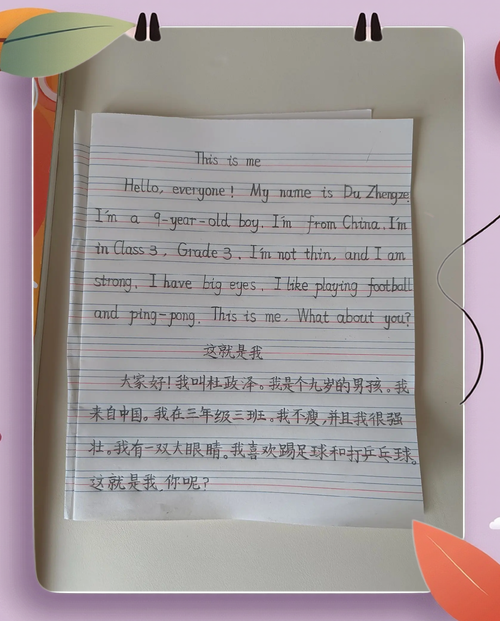 This is me
Hello, everyone! My name is Du Zhengze.
I'm a 9-year-old boy. I'm from China. I'm
in Class 3, Grade 3. I'm not thin, and I am
strong. I have big eyes. I like playing football
and ping-pong. This is me. What about you?
这就是我
大家好!我叫杜政泽。我是个九岁的男孩。我
来自中国。我在三年级三班。我不瘦,并且我很强
壮。我有一双大眼睛。我喜欢踢足球和打乒乓球。
这就是我,你呢?